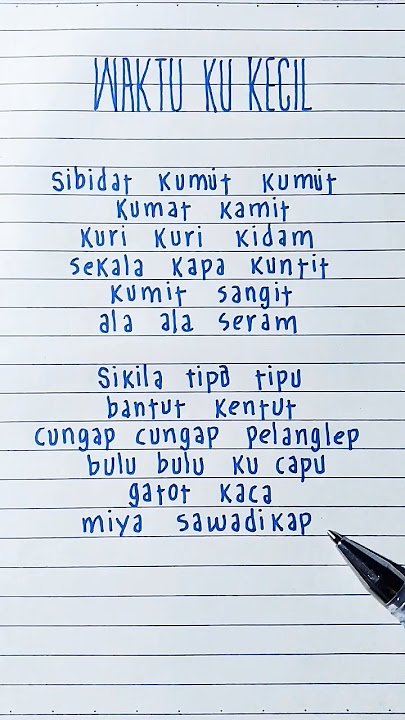 WAKTU KU KECIL
Sibidat kumit kumit
kumat kamit
kuri kuri kidam
sekala kapa kuntit
kumit sangit
ala ala seram
Sikila tipa tipu
bantut kentut
cungap cungap pelanglep
bulu bulu ku capu
gatot kaca
miya sawadikap